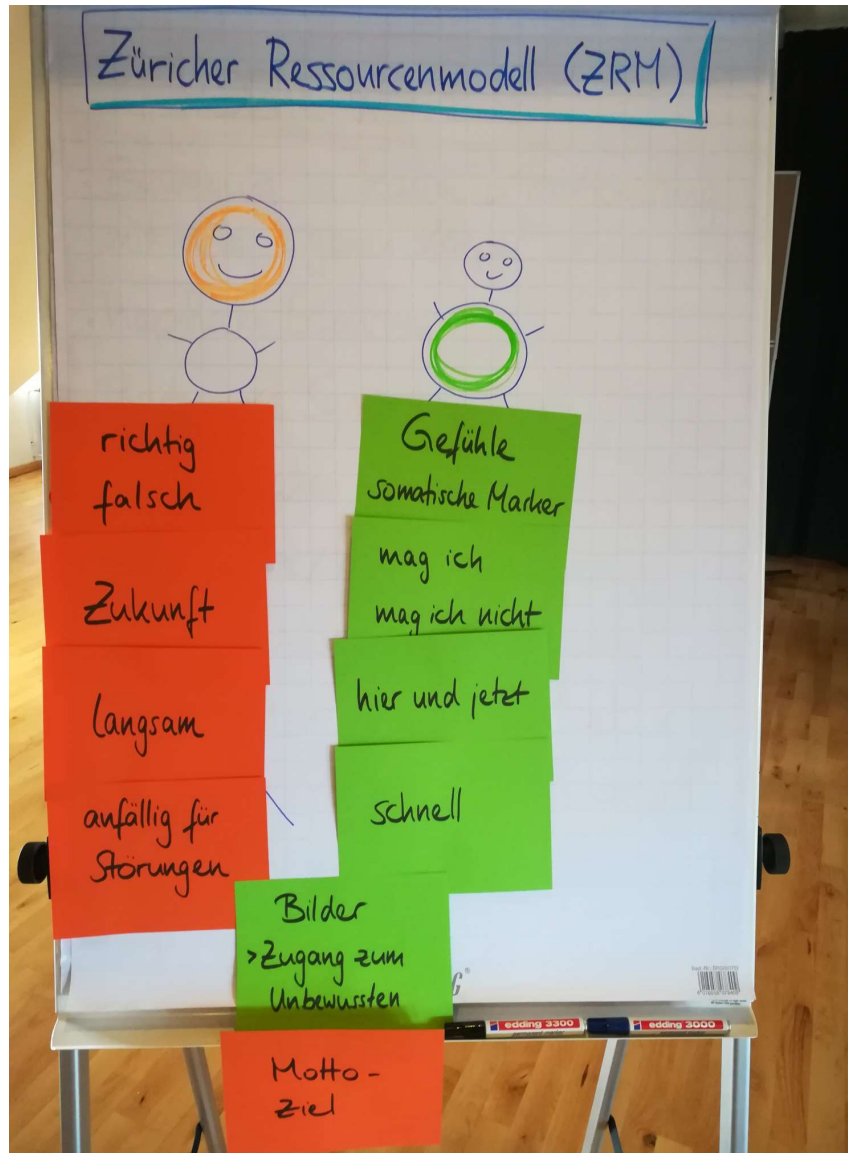 Züricher Ressourcenmodell (ZRM)
richtig
falsch
Zukunft
langsam
anfällig für
Störungen
Gefühle
somatische Marker
mag ich
mag ich nicht
hier und jetzt
schnell
Bilder
>Zugang zum
Unbewussten
Motto-
Ziel
edding 3300
edding 3000